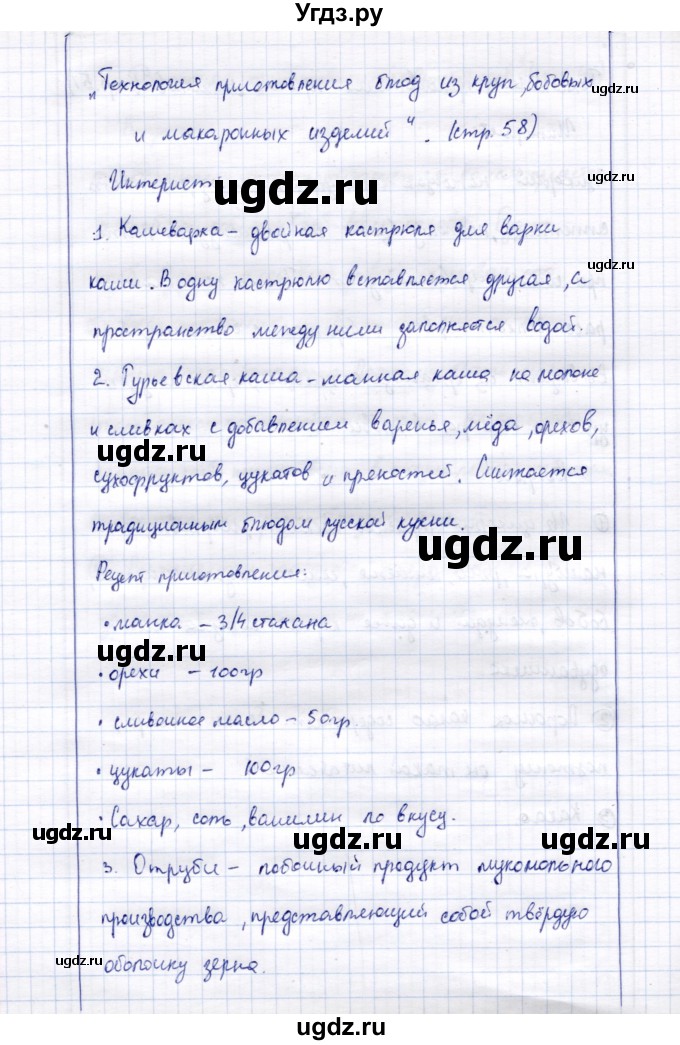 Угдз.ру
„Технология приготовления блюд из круп, бобовых
и макаронных изделий“. (стр. 58)
ugdz.ru
ugdz.ru
1. Кашеварка – двойная кастрюля для варки
каши. В одну кастрюлю вставляется другая, а
ugdz.ru
пространство между ними заполняется водой.
2. Гурьевская каша – манная каша на молоке
и сливках с добавлением варенья, мёда, орехов,
ugdz.ru
ugdz.ru
сухофруктов, цукатов и пряностей. Считается
традиционным блюдом русской кухни.
ugdz.ru
Рецепт приготовления:
• манка – 3/4 стакана
ugdz.ru
• орехи – 100гр
• сливочное масло – 50гр.
• цукаты – 100гр
• Сахар, соль, ванилин по вкусу.
ugdz.ru
ugdz.ru
ugdz.ru
3. Отруби – побочный продукт мукомольного
производства, представляющий собой твёрдую
оболочку зерна.
ugdz.ru
ugdz.ru
ugdz.ru